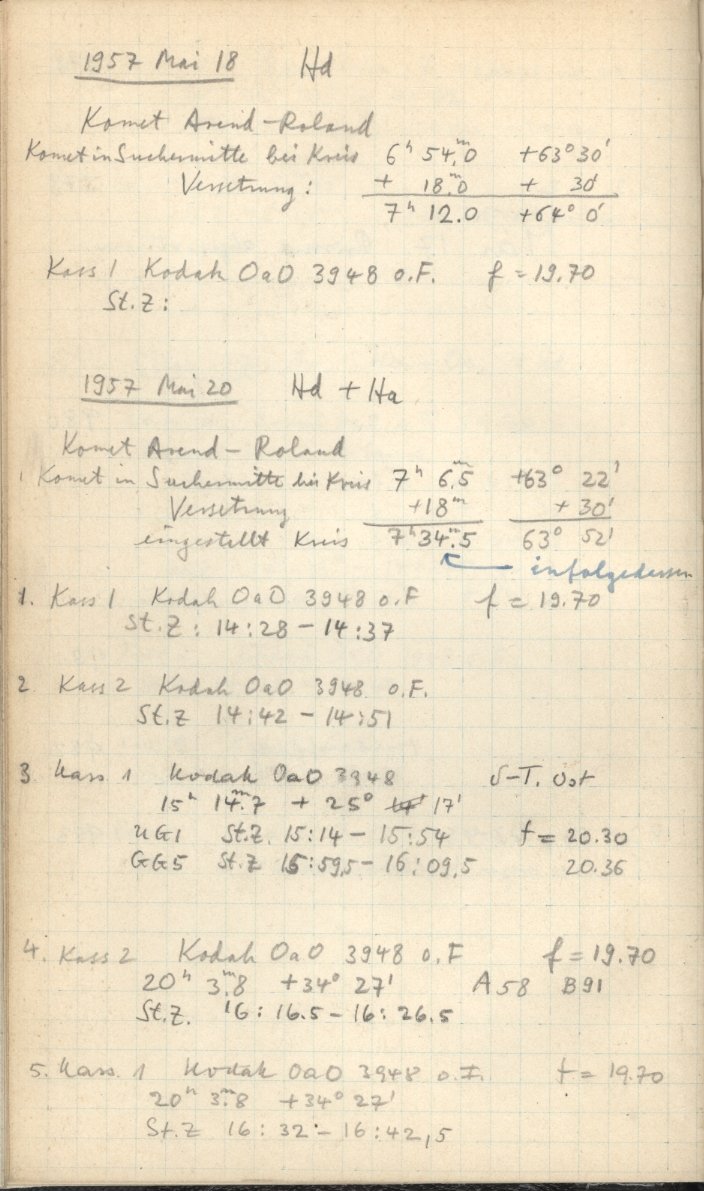 1957 Mai 18 Hd
Komet Arend-Roland
Komet in Suchermitte bei Kreis 6ʰ 54ᵐ.0 +63° 30'
Versetzung: + 18ᵐ.0 + 30'
7ʰ 12.0 +64° 0'
Kass 1 Kodak OaO 3948 o.F. f = 19.70
St.Z:
1957 Mai 20 Hd + Ha
Komet Arend-Roland
Komet in Suchermitte bei Kreis 7ʰ 6ᵐ.5 +63° 22'
Versetzung +18ᵐ + 30'
eingestellt Kreis 7ʰ 34ᵐ.5 63° 52'
infolgedessen
1. Kass 1 Kodak OaO 3948 o.F f = 19.70
St.Z: 14:28 - 14:37
2. Kass 2 Kodak OaO 3948 o.F.
St.Z 14:42 - 14:51
3. Kass. 1 Kodak OaO 3948 S-T. Ost
15ʰ 14ᵐ.7 + 25° 17'
UG1 St.Z. 15:14 - 15:54 f = 20.30
GG5 St.Z 15:59,5 - 16:09,5 20.36
4. Kass 2 Kodak OaO 3948 o.F f = 19.70
20ʰ 3ᵐ.8 +34° 27' A58 B91
St.Z. 16:16.5 - 16:26.5
5. Kass. 1 Kodak OaO 3948 o.F. f = 19.70
20ʰ 3ᵐ.8 +34° 27'
St.Z 16:32 - 16:42,5